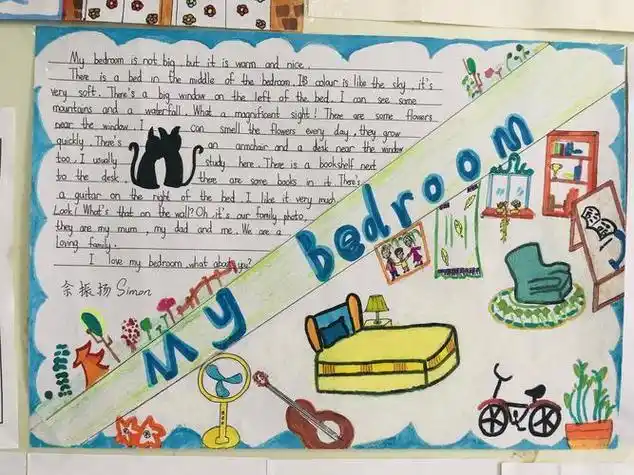 My bedroom is not big, but it is warm and nice.
There is a bed in the middle of the bedroom. It's colour is like the sky, it's
very soft. There's a big window on the left of the bed. I can see some
mountains and a waterfall. What a magnificent sight! There are some flowers
near the window. I can smell the flowers every day, they grow
quickly. There's an armchair and a desk near the window
too. I usually study here. There is a bookshelf next
to the desk, there are some books in it. There's
a guitar on the right of the bed. I like it very much.
Look! What's that on the wall? Oh, it's our family photo,
they are my mum, my dad and me. We are a
loving family.
I love my bedroom, what about you?
余振扬 Simon
My Bedroom